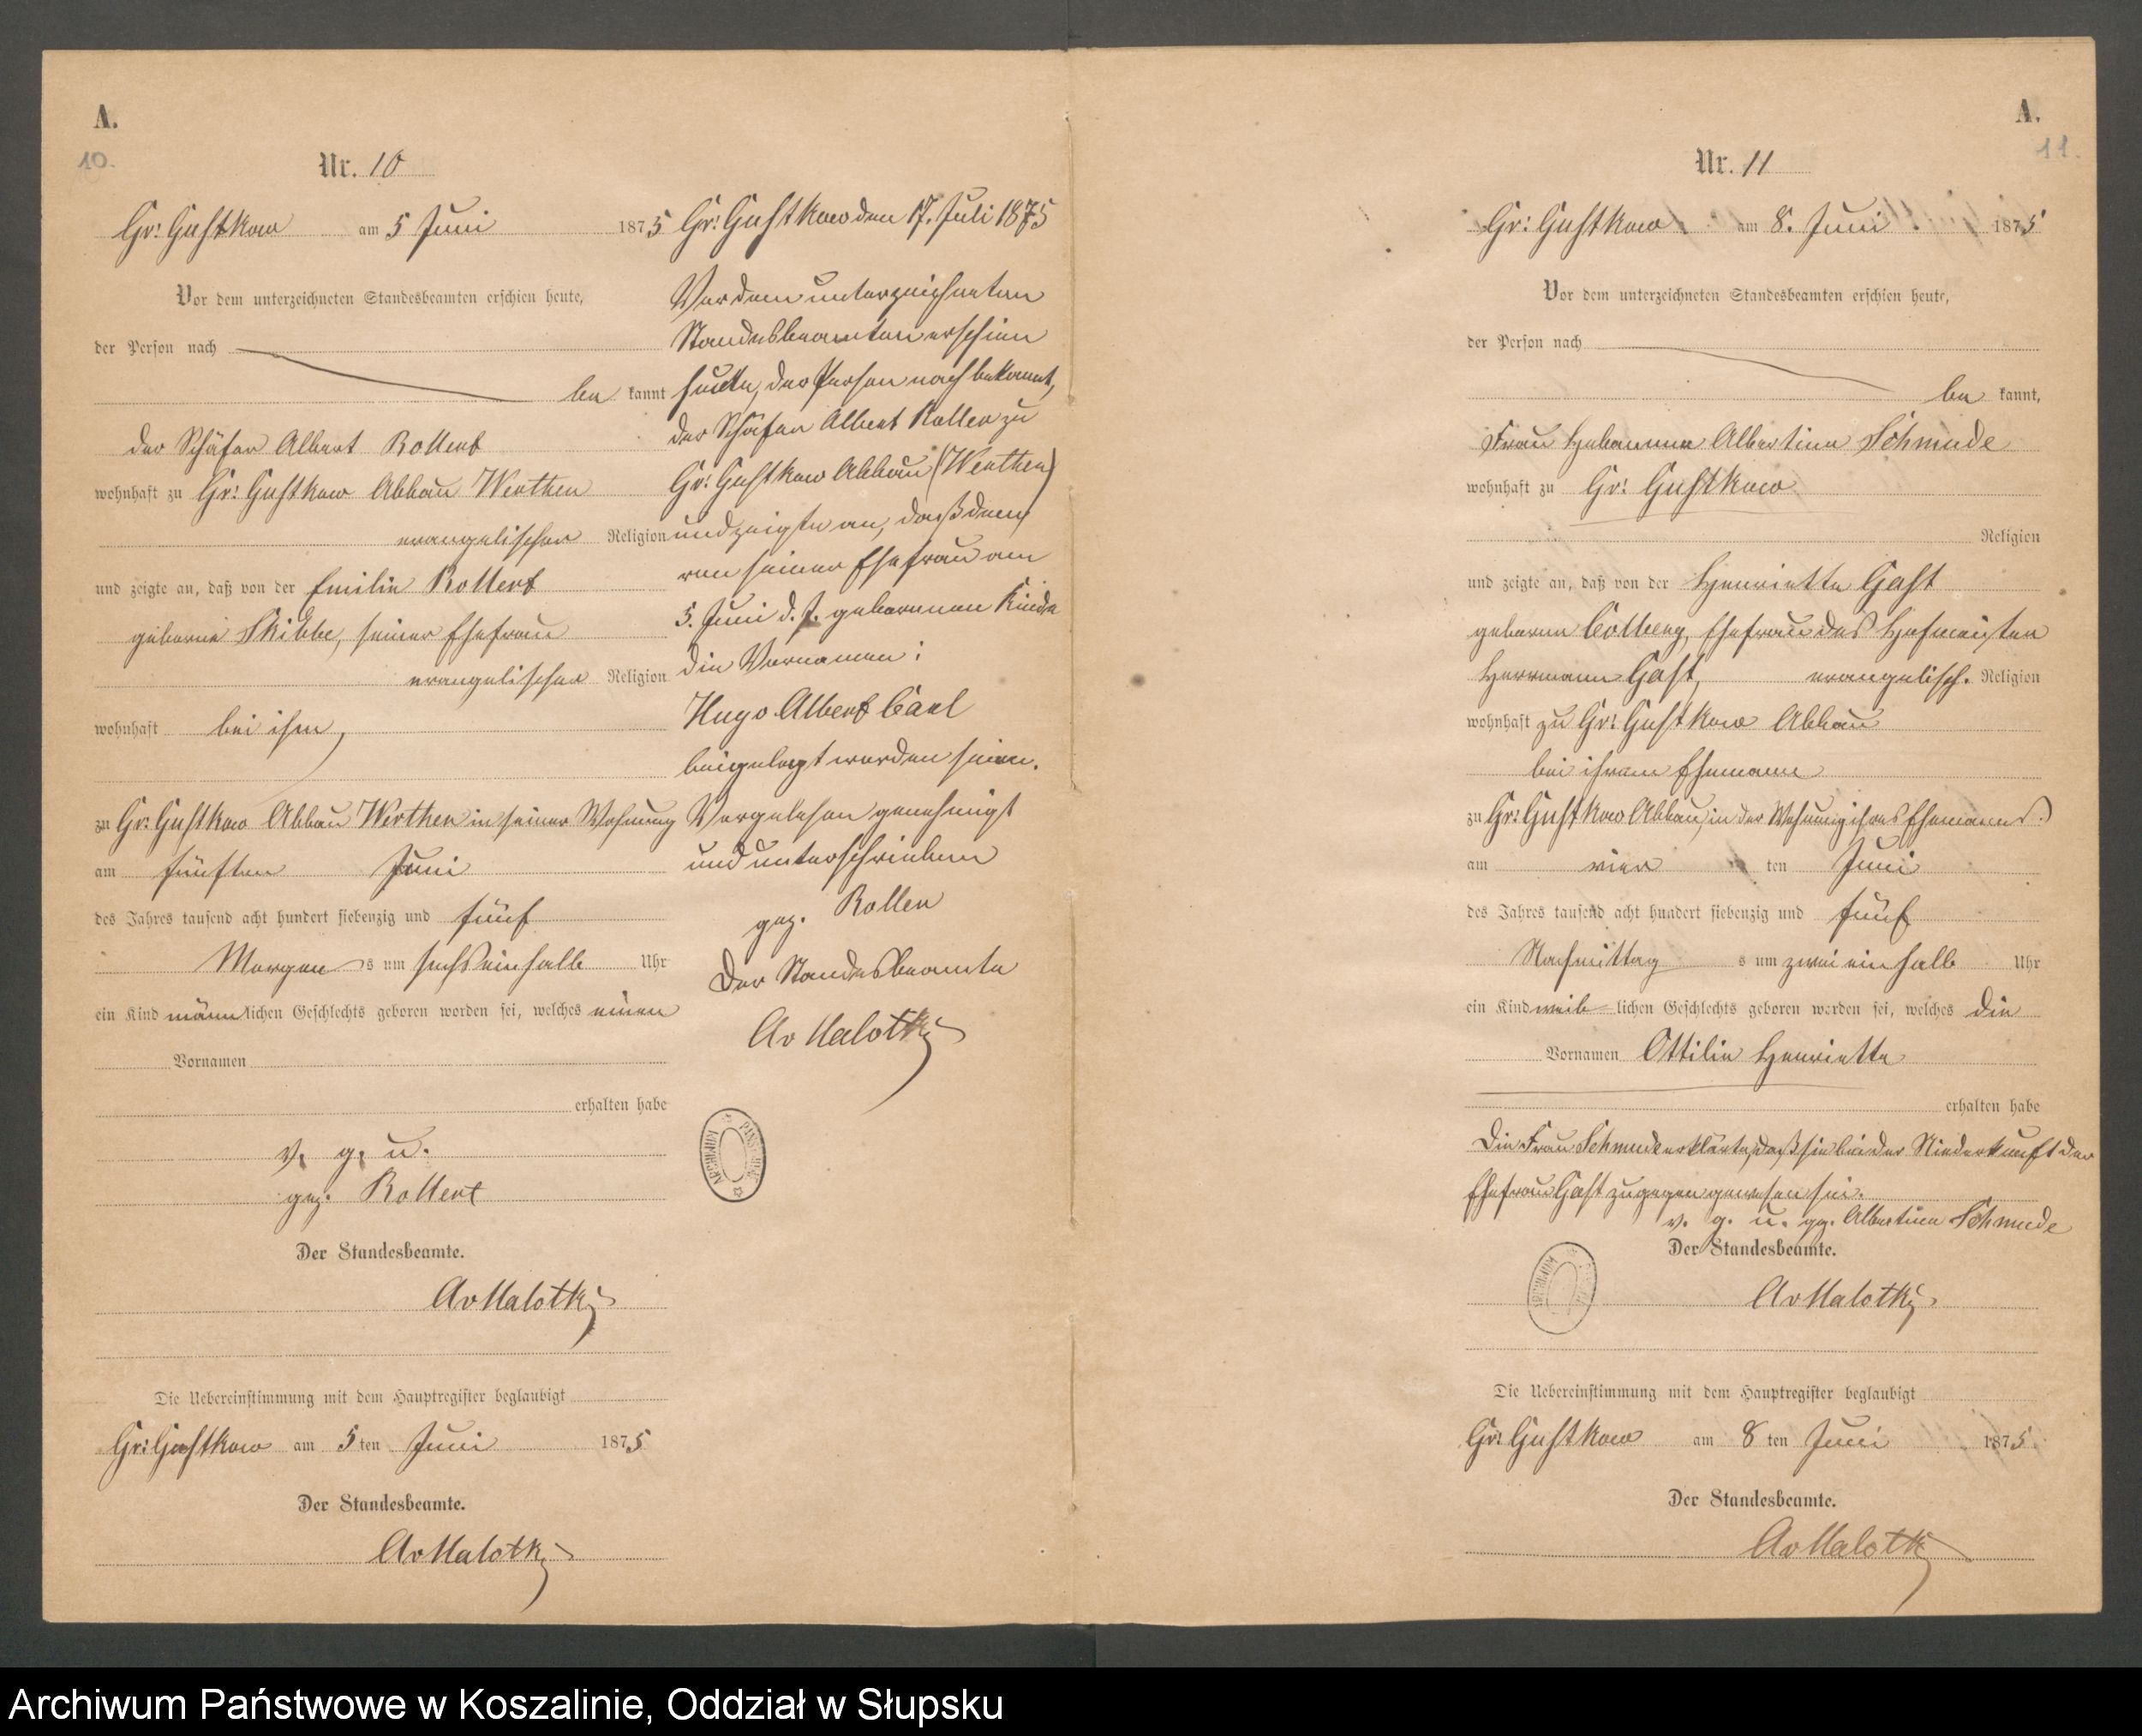 A.
10.
Nr. 10
Gr: Gustkow am 5 Juni 1875
Vor dem unterzeichneten Standesbeamten erschien heute,
der Person nach
be kannt
der Schäfer Albert Rollert
wohnhaft zu Gr: Gustkow Abbau Werthen
evangelischer Religion
und zeigte an, daß von der Emilie Rollert
geborne Skibbe, seiner Ehefrau
evangelischer Religion
wohnhaft bei ihm,
zu Gr: Gustkow Abbau Werthen in seiner Wohnung
am fünften Juni
des Jahres tausend acht hundert siebenzig und fünf
Morgen s um sechseinhalb Uhr
ein Kind männlichen Geschlechts geboren worden sei, welches einen
Vornamen
erhalten habe
v. g. u.
gez. Rollert
Der Standesbeamte.
AvMalotky
Die Uebereinstimmung mit dem Hauptregister beglaubigt
Gr: Gustkow am 5 ten Juni 1875
Der Standesbeamte.
AvMalotky
Gr: Gustkow den 17. Juli 1875
Vor dem unterzeichneten
Standesbeamten erschien
heute, der Person nach bekannt,
der Schäfer Albert Roller zu
Gr: Gustkow Abbau (Werthen)
und zeigte an, daß dem
von seiner Ehefrau am
5. Juni d. J. geborenen Kinde
die Vornamen:
Hugo Albert Carl
beigelegt worden seien.
Vorgelesen genehmigt
und unterschrieben
gez. Roller
Der Standesbeamte
AvMalotky
A.
11.
Nr. 11
Gr: Gustkow am 8. Juni 1875
Vor dem unterzeichneten Standesbeamten erschien heute,
der Person nach
be kannt,
Frau Hebamme Albertine Schmude
wohnhaft zu Gr: Gustkow
Religion
und zeigte an, daß von der Henriette Gast
geborne Collberg, Ehefrau des Hofmeister
Herrmann Gast, evangelisch. Religion
wohnhaft zu Gr: Gustkow Abbau
bei ihrem Ehemann
zu Gr: Gustkow Abbau, in der Wohnung ihres Ehemannes
am vier ten Juni
des Jahres tausend acht hundert siebenzig und fünf
Nachmittag s um zweieinhalb Uhr
ein Kind weiblichen Geschlechts geboren worden sei, welches die
Vornamen Ottilie Henriette
erhalten habe
Die Frau Schmude erklärte, daß sie bei der Niederkunft der
Ehefrau Gast zugegen gewesen sei.
v. g. u. gez. Albertine Schmude
Der Standesbeamte.
AvMalotky
Die Uebereinstimmung mit dem Hauptregister beglaubigt
Gr: Gustkow am 8 ten Juni 1875.
Der Standesbeamte.
AvMalotky
Archiwum Państwowe w Koszalinie, Oddział w Słupsku